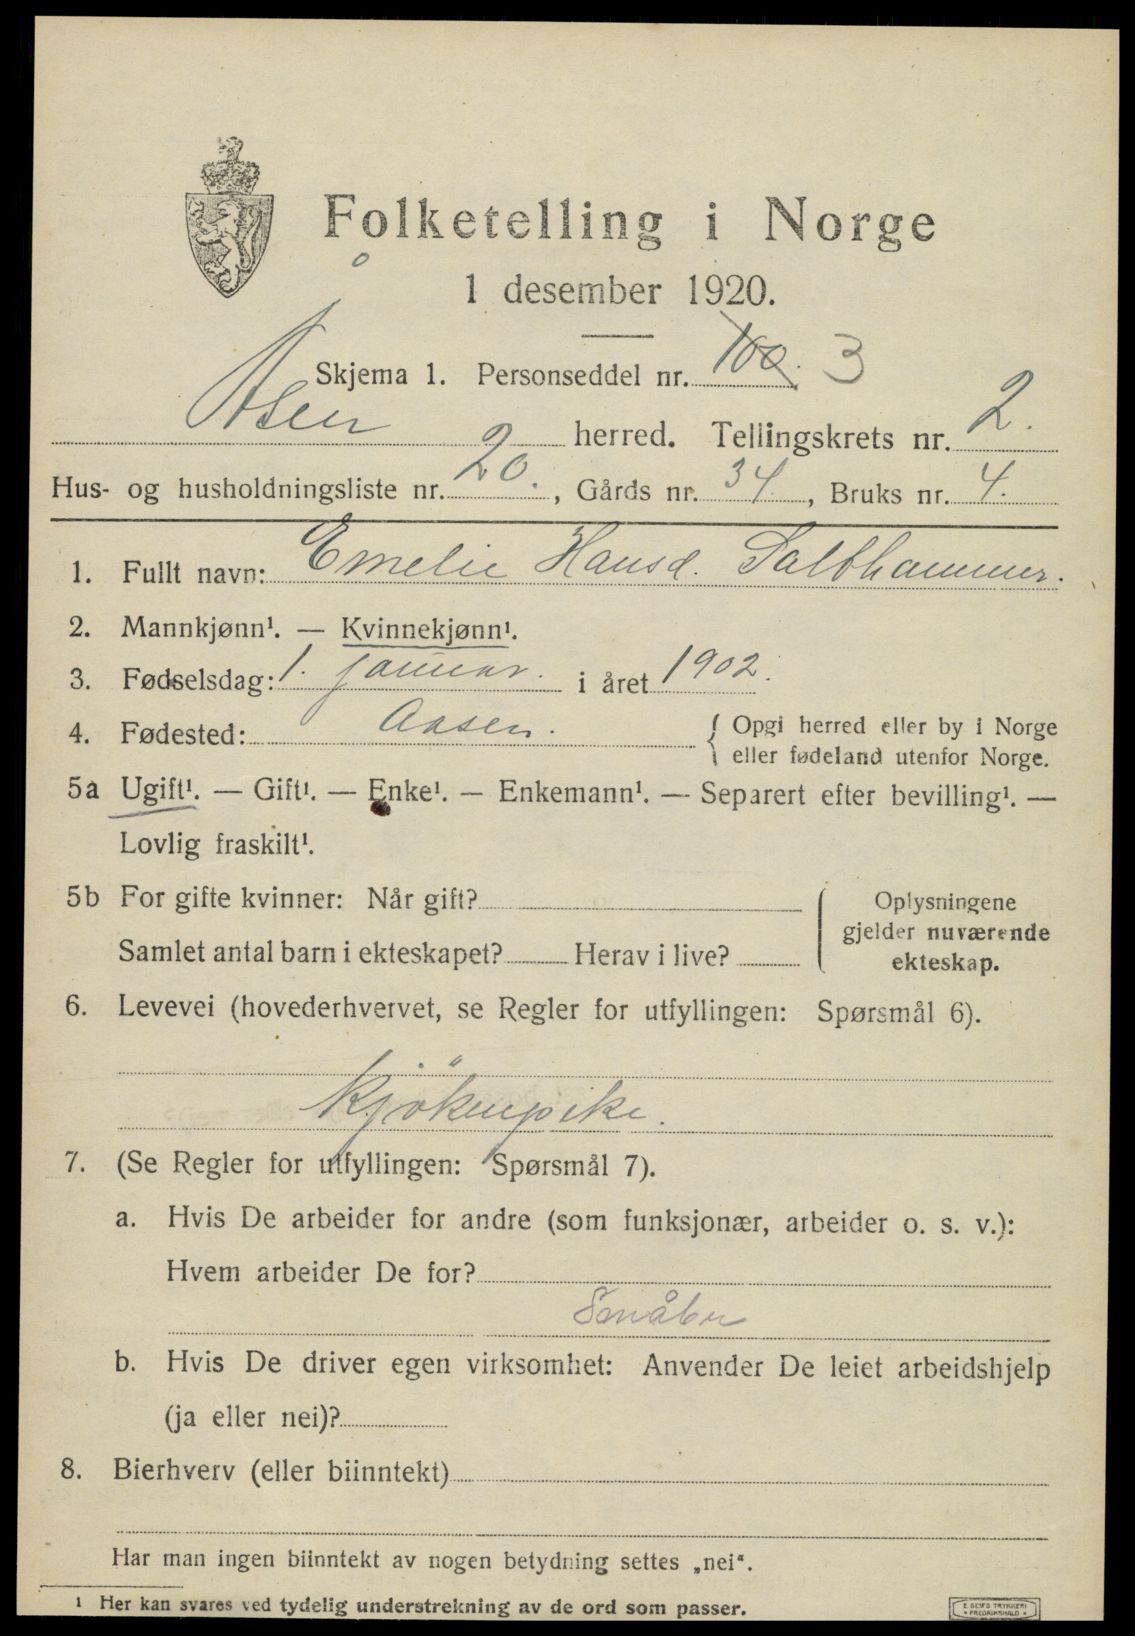 Folketelling i Norge
1 desember 1920.
Skjema 1. Personseddel nr. 100. 3
Åsen herred. Tellingskrets nr. 2.
Hus- og husholdningsliste nr. 20., Gårds nr. 34., Bruks nr. 4.
1. Fullt navn: Emelie Hansd. Salthammer.
2. Mannkjønn¹. — Kvinnekjønn¹.
3. Fødselsdag: 1. januar. i året 1902.
4. Fødested: Aasen. { Opgi herred eller by i Norge
eller fødeland utenfor Norge.
5a Ugift¹. — Gift¹. — Enke¹. — Enkemann¹. — Separert efter bevilling¹. —
Lovlig fraskilt¹.
5b For gifte kvinner: Når gift?
Samlet antal barn i ekteskapet? Herav i live?
Oplysningene
gjelder nuværende
ekteskap.
6. Levevei (hovederhvervet, se Regler for utfyllingen: Spørsmål 6).
Kjökenpike.
7. (Se Regler for utfyllingen: Spørsmål 7).
a. Hvis De arbeider for andre (som funksjonær, arbeider o. s. v.):
Hvem arbeider De for?
Småbr
b. Hvis De driver egen virksomhet: Anvender De leiet arbeidshjelp
(ja eller nei)?
8. Bierhverv (eller biinntekt)
Har man ingen biinntekt av nogen betydning settes „nei“.
1 Her kan svares ved tydelig understrekning av de ord som passer.
E. SEM'S TRYKKERI
FREDRIKSHALD